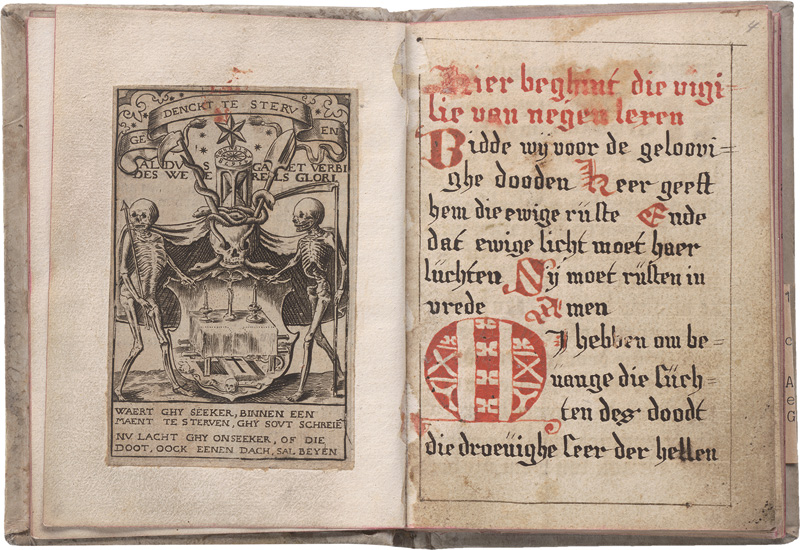 DENCKT TE STERV
GE EN
ALDVS GAET VERBI
DES WERELS GLORI
WAERT GHY SEEKER, BINNEN EEN
MAENT TE STERVEN, GHY SOVT SCHREIË
NV LACHT GHY ONSEEKER, OF DIE
DOOT, OOCK EENEN DACH, SAL BEYEN
4
Hier beghint die vigi=
lie van negen lexen
Bidde wij voor de geloovi=
ghe dooden Heer geeft
hem die ewige rüste Ende
dat ewige licht moet haer
lüchten Sij moet rüsten in
vrede Amen
Mij hebben om be=
uange die süch=
ten des doodt
die droeüighe seer der hellen
1
c
AeG